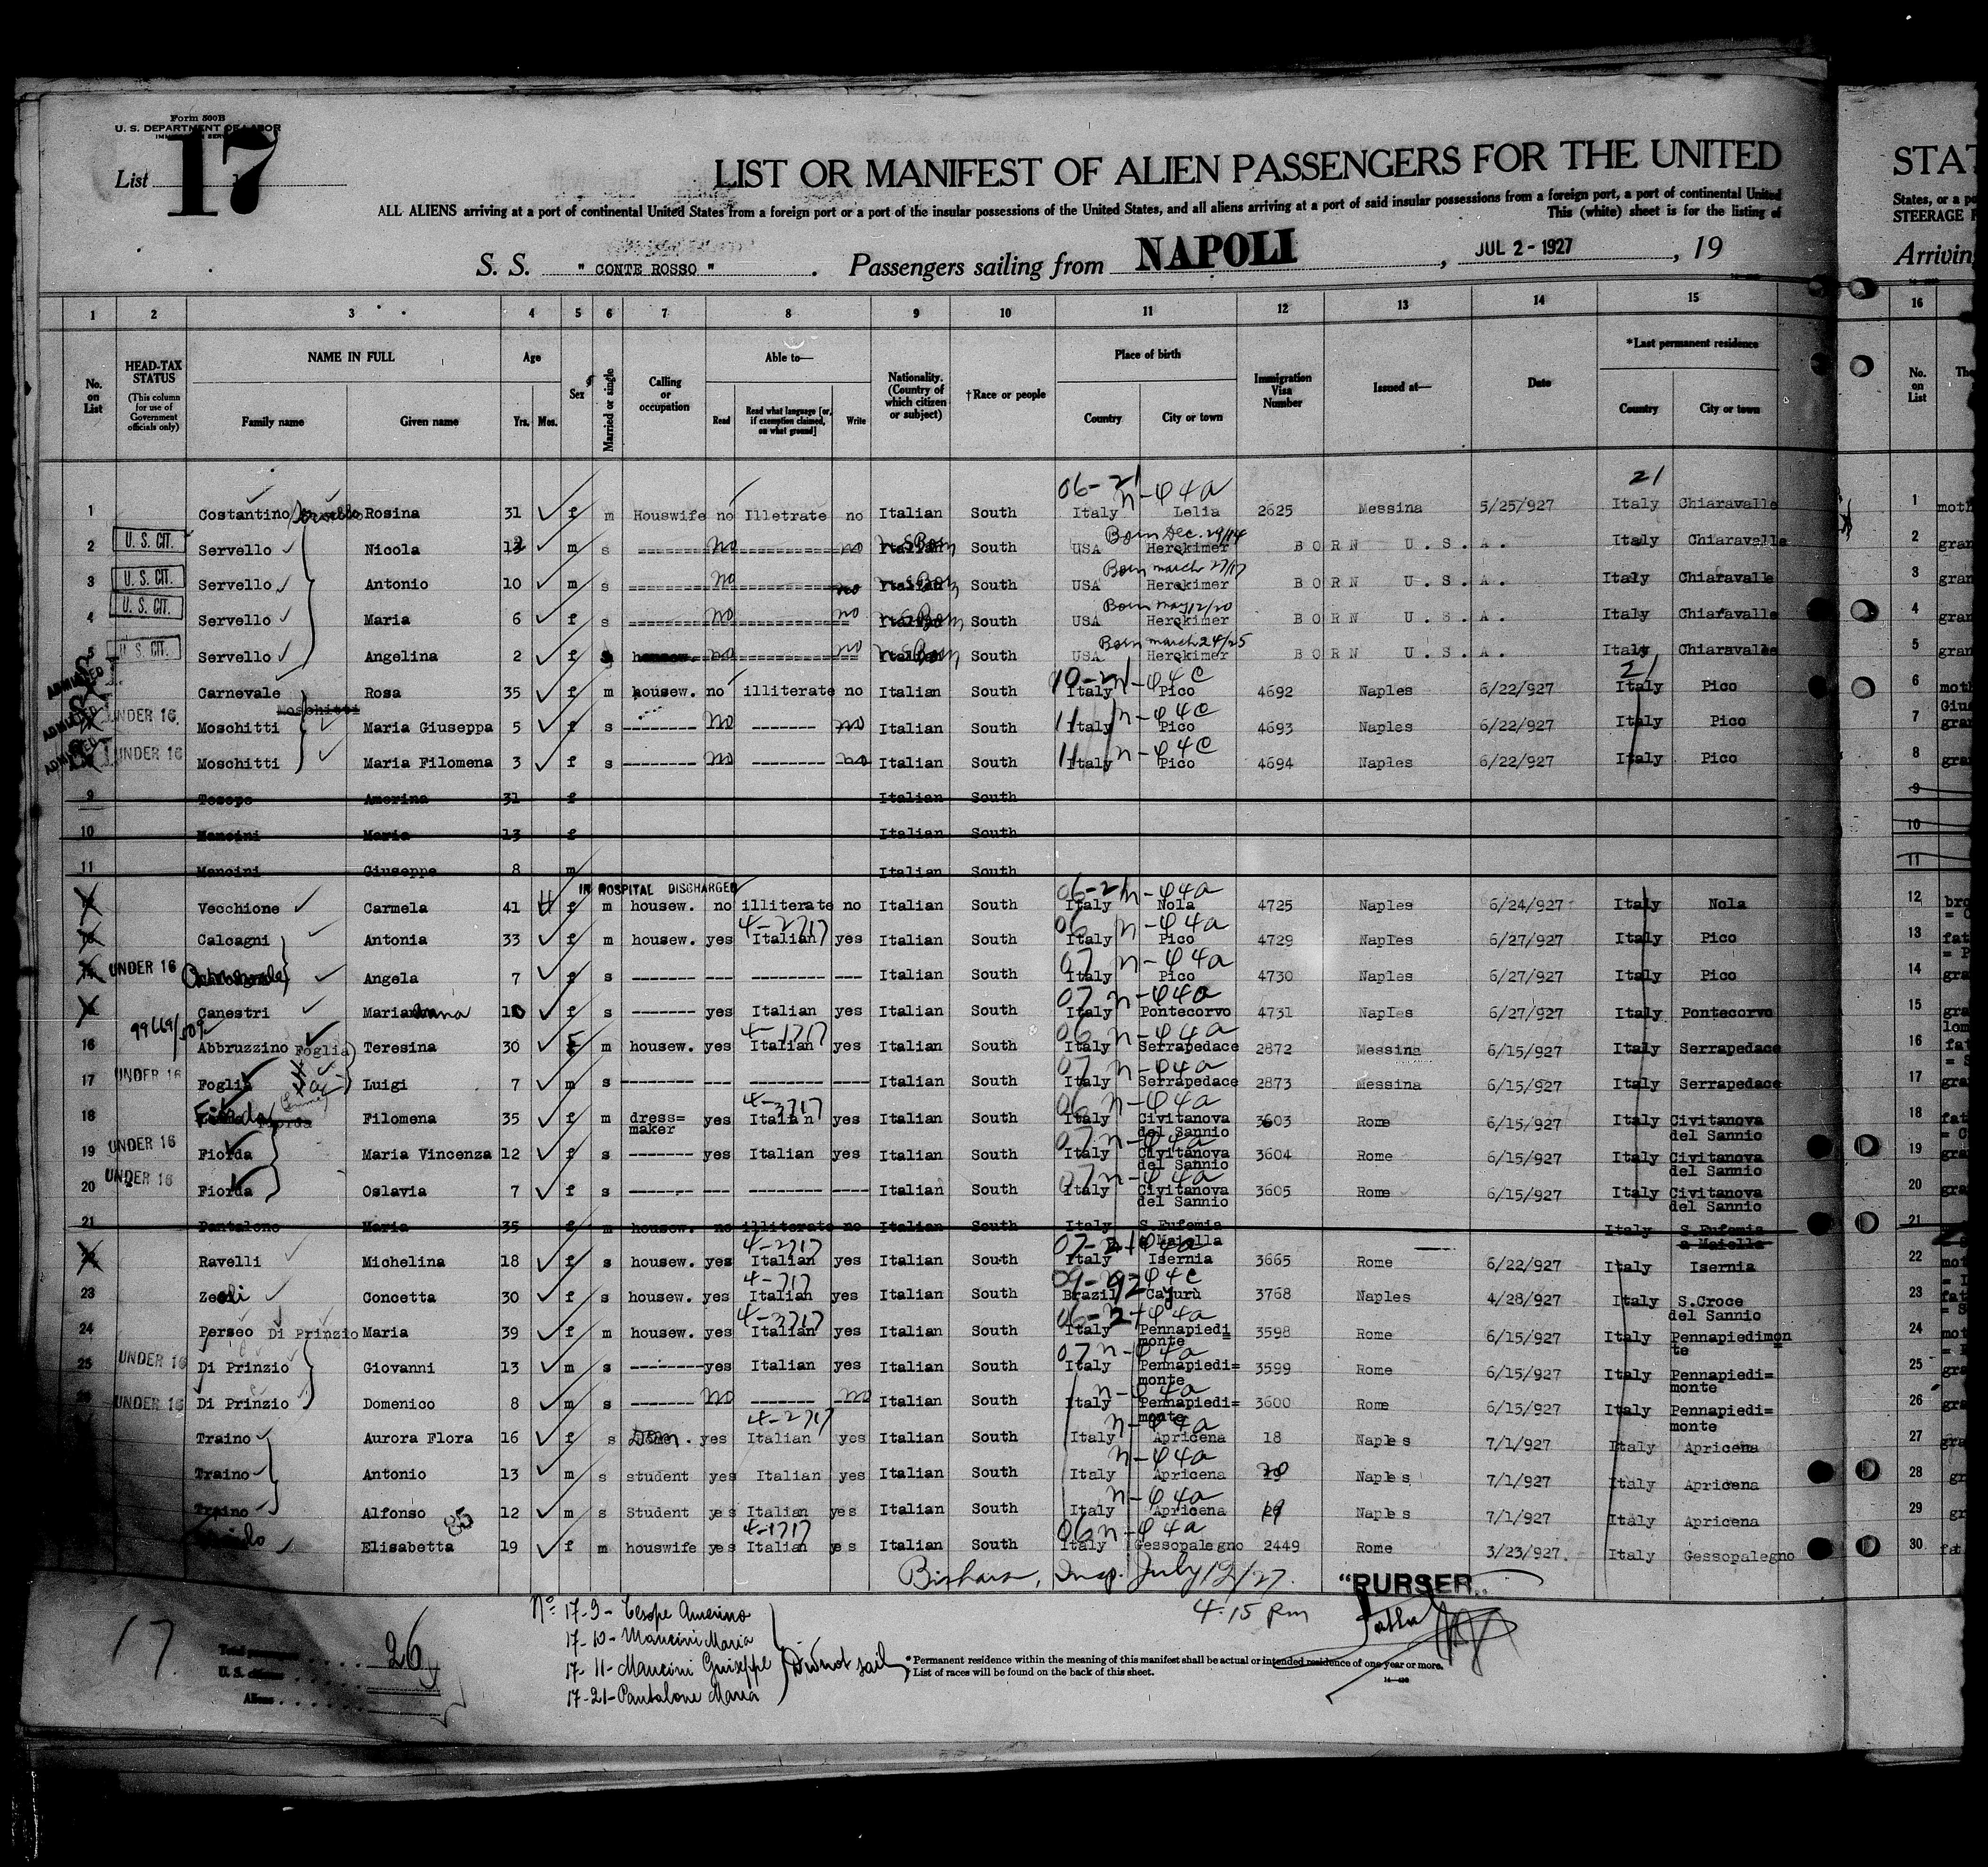 Form 500B
U. S. DEPARTMENT OF LABOR
List 17
LIST OR MANIFEST OF ALIEN PASSENGERS FOR THE UNITED
STAT
ALL ALIENS arriving at a port of continental United States from a foreign port or a port of the insular possessions of the United States, and all aliens arriving at a port of said insular possessions from a foreign port, a port of continental United
States, or a po
This (white) sheet is for the listing of
STEERAGE P
S. S. " CONTE ROSSO " . Passengers sailing from NAPOLI , JUL 2 - 1927 , 19
Arrivin
1 2 3 4 5 6 7 8 9 10 11 12 13 14 15 16
No. on List
HEAD-TAX STATUS
(This column for use of Government officials only)
NAME IN FULL
Family name Given name
Age
Yrs. Mos.
Sex
Married or single
Calling or occupation
Able to—
Read Read what language [or, if exemption claimed, on what ground] Write
Nationality. (Country of which citizen or subject)
†Race or people
Place of birth
Country City or town
Immigration Visa Number
Issued at—
Date
*Last permanent residence
Country City or town
No. on List
The
06-21 n-φ4a 21
1 Costantino Servello Rosina 31 f m Houswife no Illetrate no Italian South Italy Lelia 2625 Messina 5/25/927 Italy Chiaravalle 1 moth
Born Dec. 29/14
2 U. S. CIT. Servello Nicola 12 m s no no South USA Herokimer BORN U.S.A. Italy Chiaravalle 2 gran
Born march 27/17
3 U. S. CIT. Servello Antonio 10 m s no no South USA Herokimer BORN U.S.A. Italy Chiaravalle 3 gran
Born may 12/20
4 U. S. CIT. Servello Maria 6 f s no no South USA Herokimer BORN U.S.A. Italy Chiaravalle 4 gran
Born march 24/25
5 U. S. CIT. Servello Angelina 2 f s no no South USA Herokimer BORN U.S.A. Italy Chiaravalle 5 gran
10-21 n-φ4c 21
ADMITTED Carnevale Moschitti Rosa 35 f m housew. no illiterate no Italian South Italy Pico 4692 Naples 6/22/927 Italy Pico 6 moth
11 n-φ4c
ADMITTED UNDER 16 Moschitti Maria Giuseppa 5 f s no no Italian South Italy Pico 4693 Naples 6/22/927 Italy Pico 7 Gius gran
11 n-φ4c
ADMITTED UNDER 16 Moschitti Maria Filomena 3 f s no no Italian South Italy Pico 4694 Naples 6/22/927 Italy Pico 8 gran
9 Tesope Amerina 31 f Italian South 9
10 Mancini Maria 13 f Italian South 10
11 Mancini Giuseppe 8 m Italian South 11
IN HOSPITAL DISCHARGED 06-21 n-φ4a
Vecchione Carmela 41 H f m housew. no illiterate no Italian South Italy Nola 4725 Naples 6/24/927 Italy Nola 12 bro
4-2717 06 n-φ4a
Calcagni Antonia 33 f m housew. yes Italian yes Italian South Italy Pico 4729 Naples 6/27/927 Italy Pico 13 fat
07 n-φ4a
UNDER 16 Angela 7 f s Italian South Italy Pico 4730 Naples 6/27/927 Italy Pico 14 gra
07 n-φ4a
Canestri Marianna 10 f s yes Italian yes Italian South Italy Pontecorvo 4731 Naples 6/27/927 Italy Pontecorvo 15 gra
4-1717 06 n-φ4a
16 99669/509 Abbruzzino Foglia Teresina 30 F m housew. yes Italian yes Italian South Italy Serrapedace 2872 Messina 6/15/927 Italy Serrapedace 16 fat
07 n-φ4a
17 UNDER 16 Foglia Luigi 7 m s Italian South Italy Serrapedace 2873 Messina 6/15/927 Italy Serrapedace 17 gra
4-3717 06 n-φ4a
18 Fiorda Filomena 35 f m dress=maker yes Italian yes Italian South Italy Civitanova del Sannio 3603 Rome 6/15/927 Italy Civitanova del Sannio 18 fat
07 n-φ4a
19 UNDER 16 Fiorda Maria Vincenza 12 f s yes Italian yes Italian South Italy Civitanova del Sannio 3604 Rome 6/15/927 Italy Civitanova del Sannio 19 gra
07 n-φ4a
20 UNDER 16 Fiorda Oslavia 7 f s Italian South Italy Civitanova del Sannio 3605 Rome 6/15/927 Italy Civitanova del Sannio 20 gra
21 Pantalone Maria 35 f m housew. no illiterate no Italian South Italy S.Eufemia a Maiella Italy S.Eufemia a Maiella 21
4-2717 07-21 φ4a
Ravelli Michelina 18 f s housew. yes Italian yes Italian South Italy Isernia 3665 Rome 6/22/927 Italy Isernia 22 mot
4-717 09-92 φ4c
23 Zeoli Concetta 30 f s housew. yes Italian yes Italian South Brazil Cajurù 3768 Naples 4/28/927 Italy S.Croce del Sannio 23 fat
4-3717 06-21 φ4a
24 Perseo Di Prinzio Maria 39 f m housew. yes Italian yes Italian South Italy Pennapiedi=monte 3598 Rome 6/15/927 Italy Pennapiedimonte 24 mot
07 n-φ4a
25 UNDER 16 Di Prinzio Giovanni 13 m s yes Italian yes Italian South Italy Pennapiedi=monte 3599 Rome 6/15/927 Italy Pennapiedi=monte 25 gra
n-φ4a
26 UNDER 16 Di Prinzio Domenico 8 m s no no Italian South Italy Pennapiedi=monte 3600 Rome 6/15/927 Italy Pennapiedi=monte 26 gra
4-2717 n-φ4a
Traino Aurora Flora 16 f s yes Italian yes Italian South Italy Apricena 18 Naples 7/1/927 Italy Apricena 27 gra
n-φ4a
Traino Antonio 13 m s student yes Italian yes Italian South Italy Apricena 20 Naples 7/1/927 Italy Apricena 28 gr
n-φ4a
Traino Alfonso 85 12 m s Student yes Italian yes Italian South Italy Apricena 19 Naples 7/1/927 Italy Apricena 29 gr
4-1717 06 n-φ4a
Elisabetta 19 f m houswife yes Italian yes Italian South Italy Gessopalegno 2449 Rome 3/23/927. Italy Gessopalegno 30 fat
Insp. July 12/27. "PURSER"
4.15 Pm
17 Total passengers 26
U. S. citizens
Aliens
No: 17-9- Tesope Amerino
17-10- Mancini Maria
17-11- Mancini Guiseppe
17-21- Pantalone Maria
Did not sail
*Permanent residence within the meaning of this manifest shall be actual or intended residence of one year or more.
†List of races will be found on the back of this sheet.